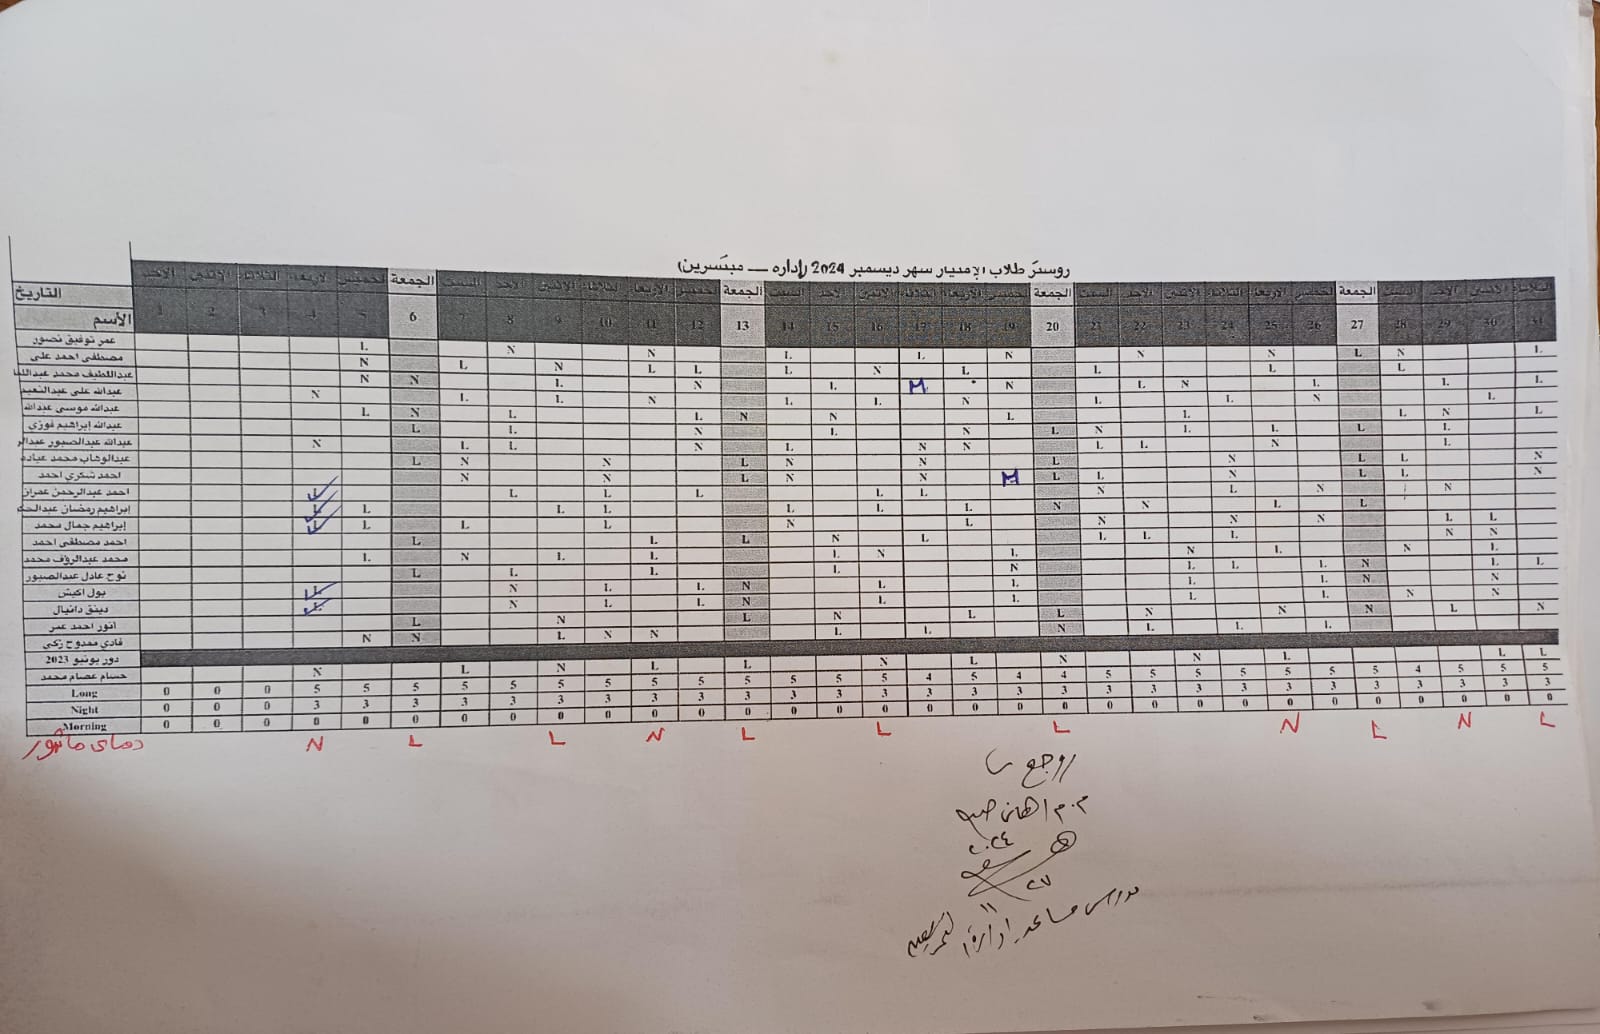 روستر طلاب الإمتياز شهر ديسمبر 2024 (إداره — مبتسرين)
التاريخ الاحد الاثنين الثلاثاء الاربعاء الخميس الجمعة السبت الاحد الاثنين الثلاثاء الاربعاء الخميس الجمعة السبت الاحد الاثنين الثلاثاء الاربعاء الخميس الجمعة السبت الاحد الاثنين الثلاثاء الاربعاء الخميس الجمعة السبت الاحد الاثنين الثلاثاء
الأسم 1 2 3 4 5 6 7 8 9 10 11 12 13 14 15 16 17 18 19 20 21 22 23 24 25 26 27 28 29 30 31
عمر توفيق نصور L N N L L N N N L N L
مصطفى احمد على N L N L L L N L L L L
عبداللطيف محمد N N L N L M N L N L L L
عبدالله على N L L N L L N L L N L
عبدالله موسى عبدالله L N L L N N L L L N L
عبدالله إبراهيم فوزى L L N L N L N L L L L
عبدالله عبدالصبور N L L N L N N L L N L
عبدالوهاب محمد L N N L N N L N L L N
احمد شكري احمد N N L N N M L L N L L N
احمد عبدالرحمن عمران L L L L L L N L N N
إبراهيم رمضان L L L L L L L N N L L
إبراهيم جمال محمد L L L L N L N N N L L
احمد مصطفى احمد L L L N L L L L N N
محمد عبدالرؤف محمد L N L L L N L N L N L
نوح عادل عبدالصبور L L L L N L L L N L L
بول اكيش L N L L N L L L L N N
دينق دانيال L N L L N L L L L N N
انور احمد عمر L N L N L L N N N L N
فادي ممدوح زكى N N L N N L L N L L L
دور يونيو 2023
حسام عصام محمد N L N L L N L N N L L L
Long 0 0 0 5 5 5 5 5 5 5 5 5 5 5 5 5 4 5 4 4 5 5 5 5 5 5 5 4 5 5 5
Night 0 0 0 3 3 3 3 3 3 3 3 3 3 3 3 3 3 3 3 3 3 3 3 3 3 3 3 3 3 3 3
Morning 0 0 0 0 0 0 0 0 0 0 0 0 0 0 0 0 0 0 0 0 0 0 0 0 0 0 0 0 0 0 0
N L L N L L L N L N L
٢٠٢٤
٢٧
١١
مدرس مساعد إدارة التمريض